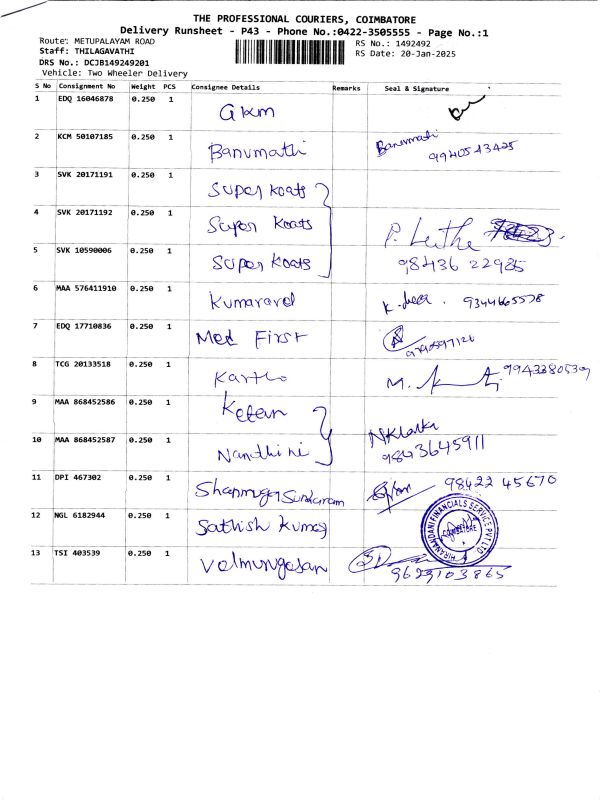 THE PROFESSIONAL COURIERS, COIMBATORE
Delivery Runsheet - P43 - Phone No.:0422-3505555 - Page No.:1
Route: METUPALAYAM ROAD
RS No.: 1492492
Staff: THILAGAVATHI
RS Date: 20-Jan-2025
DRS No.: DCJB149249201
Vehicle: Two Wheeler Delivery
S No Consignment No Weight PCS Consignee Details Remarks Seal & Signature
1 EDQ 16046878 0.250 1 Gkm
2 KCM 50107185 0.250 1 Banumathi Banumathi 9940543425
3 SVK 20171191 0.250 1 Super Koats
4 SVK 20171192 0.250 1 Super Koats P.
5 SVK 10590006 0.250 1 Super Koats 98436 22985
6 MAA 576411910 0.250 1 Kumaravel 9344665578
7 EDQ 17710836 0.250 1 Med First
8 TCG 20133518 0.250 1 M. 9943380530
9 MAA 868452586 0.250 1 Ketan
10 MAA 868452587 0.250 1 Nandhini 9843645911
11 DPI 467302 0.250 1 Shanmuga Sundaram 98422 45670
12 NGL 6182944 0.250 1 Sathish Kumar
HIRANANDANI FINANCIALS SERVICE PVT LTD
COIMBATORE
13 TSI 403539 0.250 1 Valmurugasan 9629103865